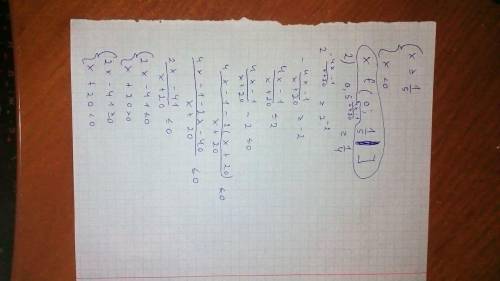 { x ≥ 1/5
x < 0
x ∈ (0; 1/5]
2) 0,5^((4x-1)/(x+20)) ≥ 1/4
2^(-(4x-1)/(x+20)) ≥ 2^(-2)
- (4x-1)/(x+20) ≥ -2
(4x-1)/(x+20) ≤ 2
(4x-1)/(x+20) - 2 ≤ 0
(4x-1-2(x+20))/(x+20) ≤ 0
(4x-1-2x-40)/(x+20) ≤ 0
(2x-41)/(x+20) ≤ 0
{ 2x-41≤0
x+20>0
{ 2x-41≥0
x+20<0